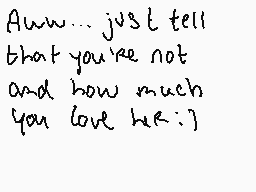 Aww... just tell
that you're not
and how much
you love her :)